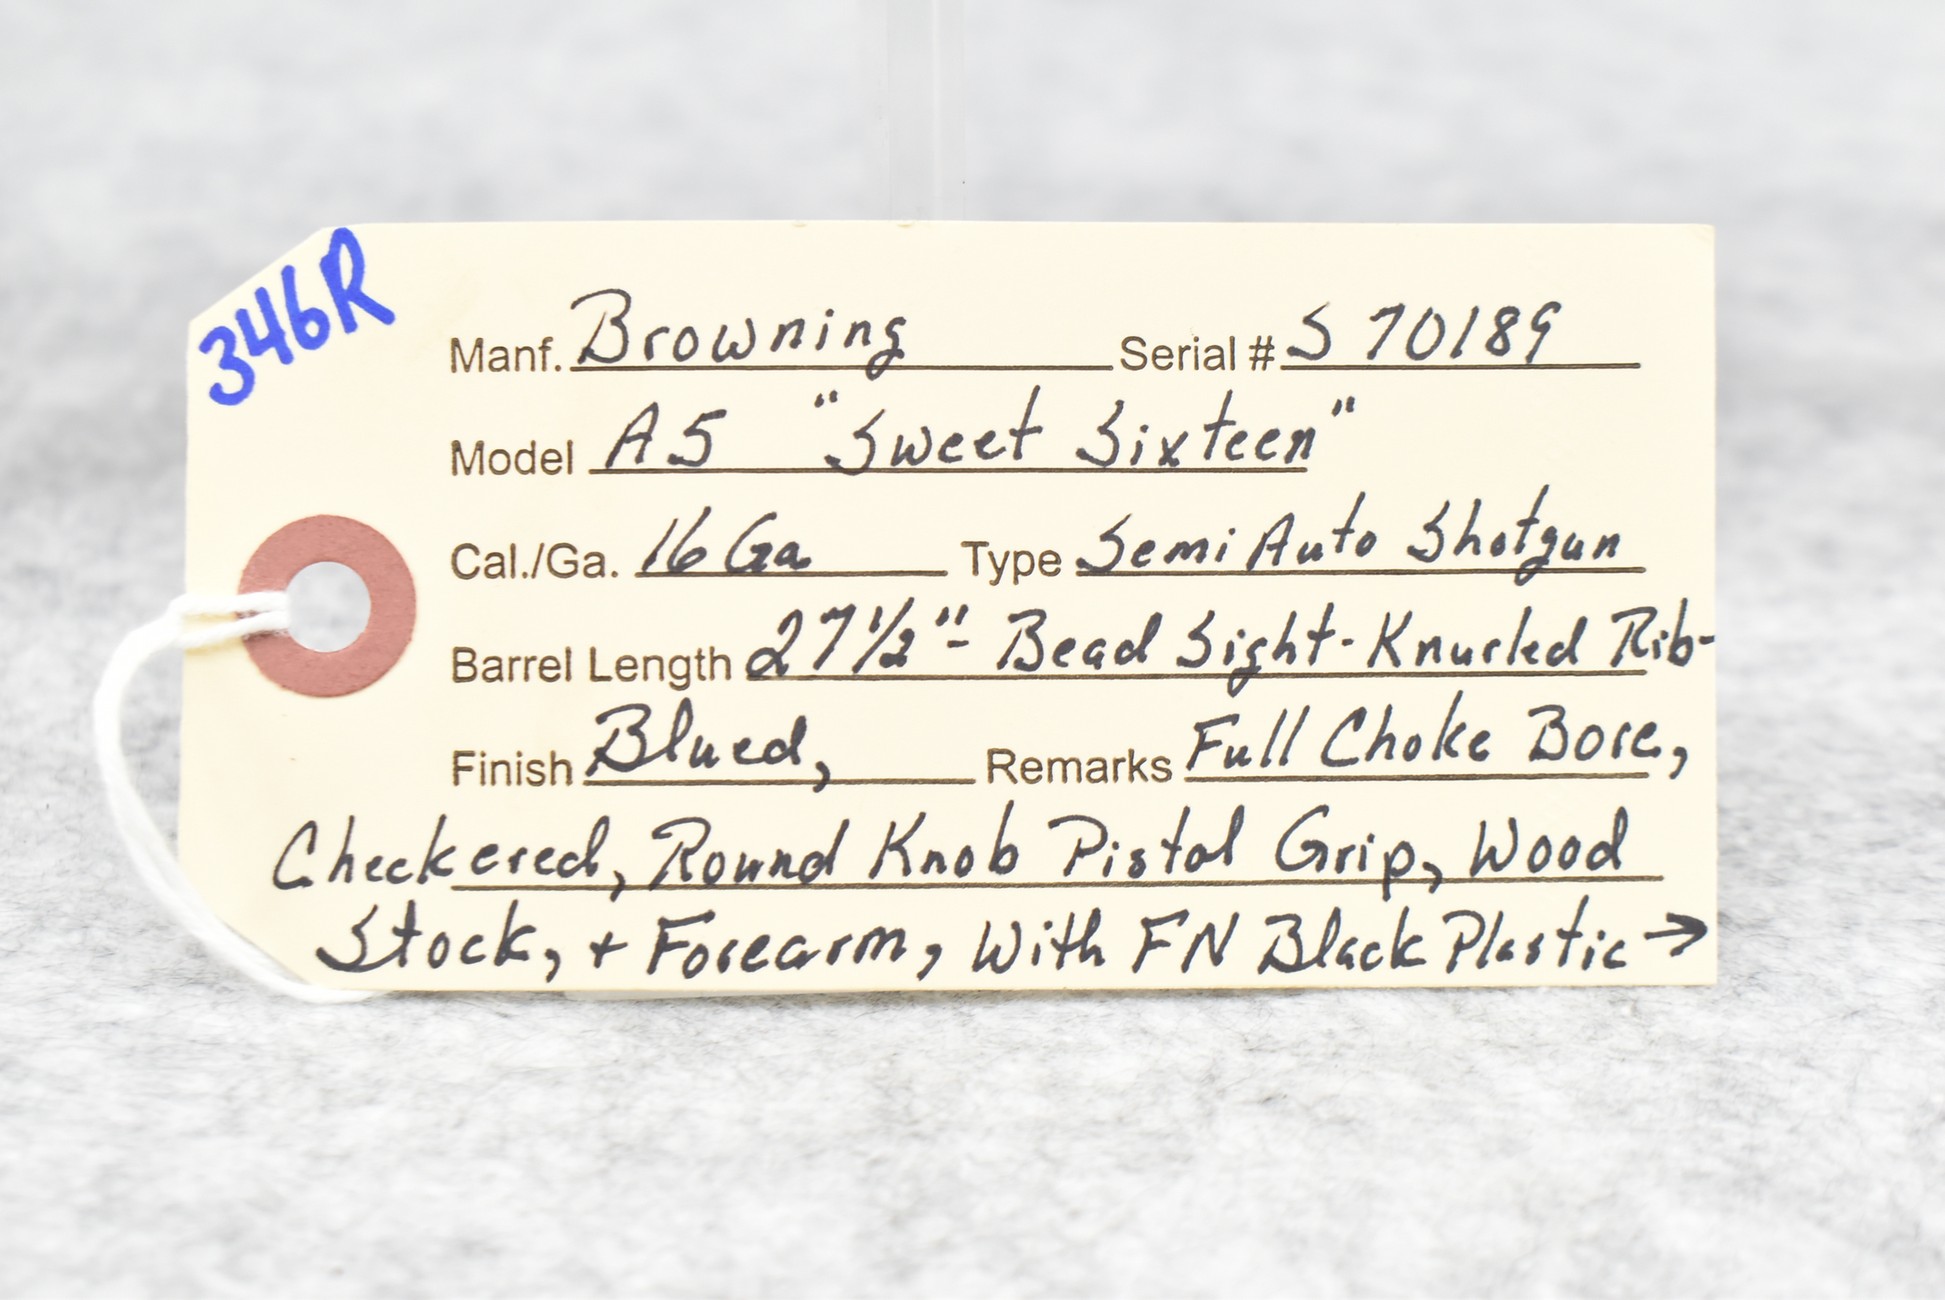 346R
Manf. Browning Serial # S 70189
Model A5 "Sweet Sixteen"
Cal./Ga. 16 Ga Type Semi Auto Shotgun
Barrel Length 27 1/2" - Bead Sight - Knurled Rib -
Finish Blued, Remarks Full Choke Bore,
Checkered, Round Knob Pistol Grip, Wood
Stock, + Forearm, With FN Black Plastic →